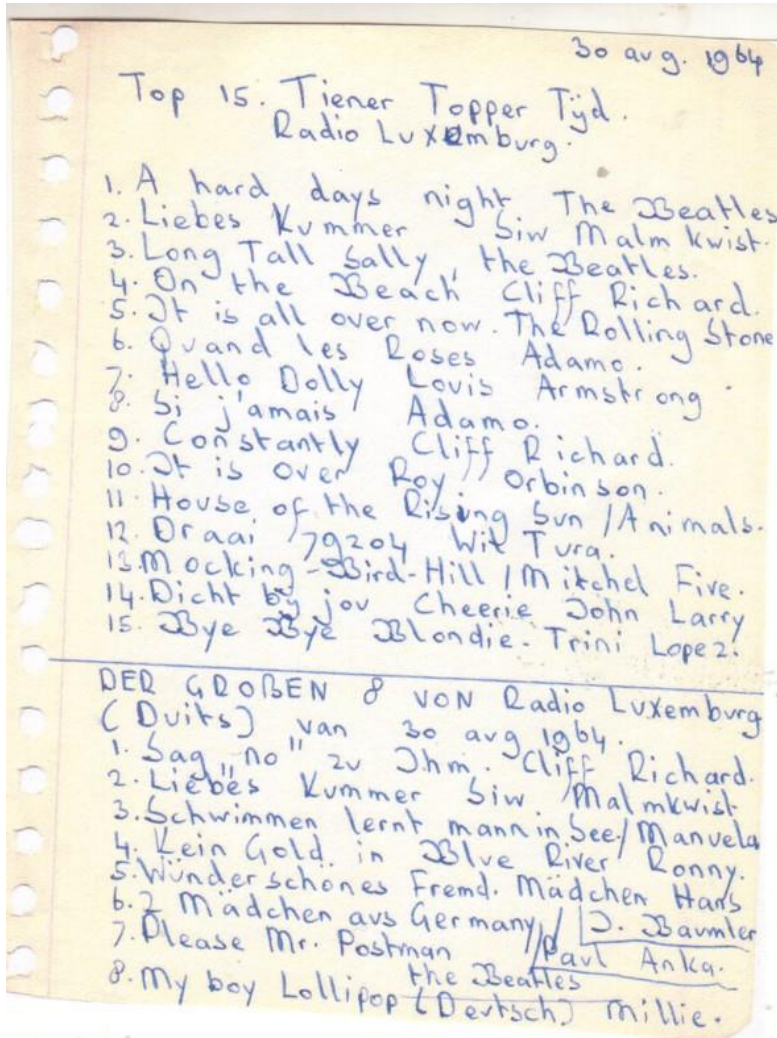 30 aug. 1964
Top 15. Tiener Topper Tÿd.
Radio Luxemburg.
1. A hard days night The Beatles
2. Liebes Kummer Siw Malm kwist.
3. Long Tall Sally, the Beatles.
4. On the Beach Cliff Richard.
5. It is all over now. The Rolling Stone
6. Quand les Roses Adamo.
7. Hello Dolly Louis Armstrong.
8. Si j'amais Adamo.
9. Constantly Cliff Richard.
10. It is over Roy Orbinson.
11. House of the Rising Sun / Animals.
12. Draai 79204 Wil Tura.
13. Mocking-Bird-Hill / Mitchel Five.
14. Dicht by jou Cheerie John Larry
15. Bye Bye Blondie. Trini Lopez.
DER GROßEN 8 VON Radio Luxemburg
(Duits) van 30 aug 1964.
1. Sag „no" zu Ihm. Cliff Richard.
2. Liebes Kummer Siw. Malmkwist
3. Schwimmen lernt mann in See / Manuela
4. Kein Gold. in Blue River Ronny.
5. Wünderschönes Fremd. Mädchen Hans
6. 2 Mädchen aus Germany / J. Baumler
7. Please Mr. Postman / Paul Anka.
the Beatles
8. My boy Lollipop (Deutsch) Millie.